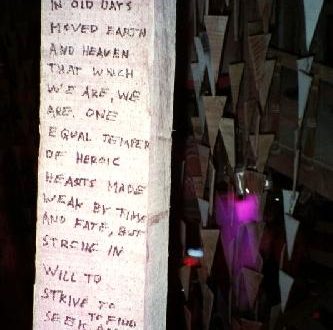 IN OLD DAYS
MOVED EARTH
AND HEAVEN
THAT WHICH
WE ARE, WE
ARE. ONE
EQUAL TEMPER
OF HEROIC
HEARTS MADE
WEAK BY TIME
AND FATE, BUT
STRONG IN
WILL TO
STRIVE TO
SEEK TO FIND